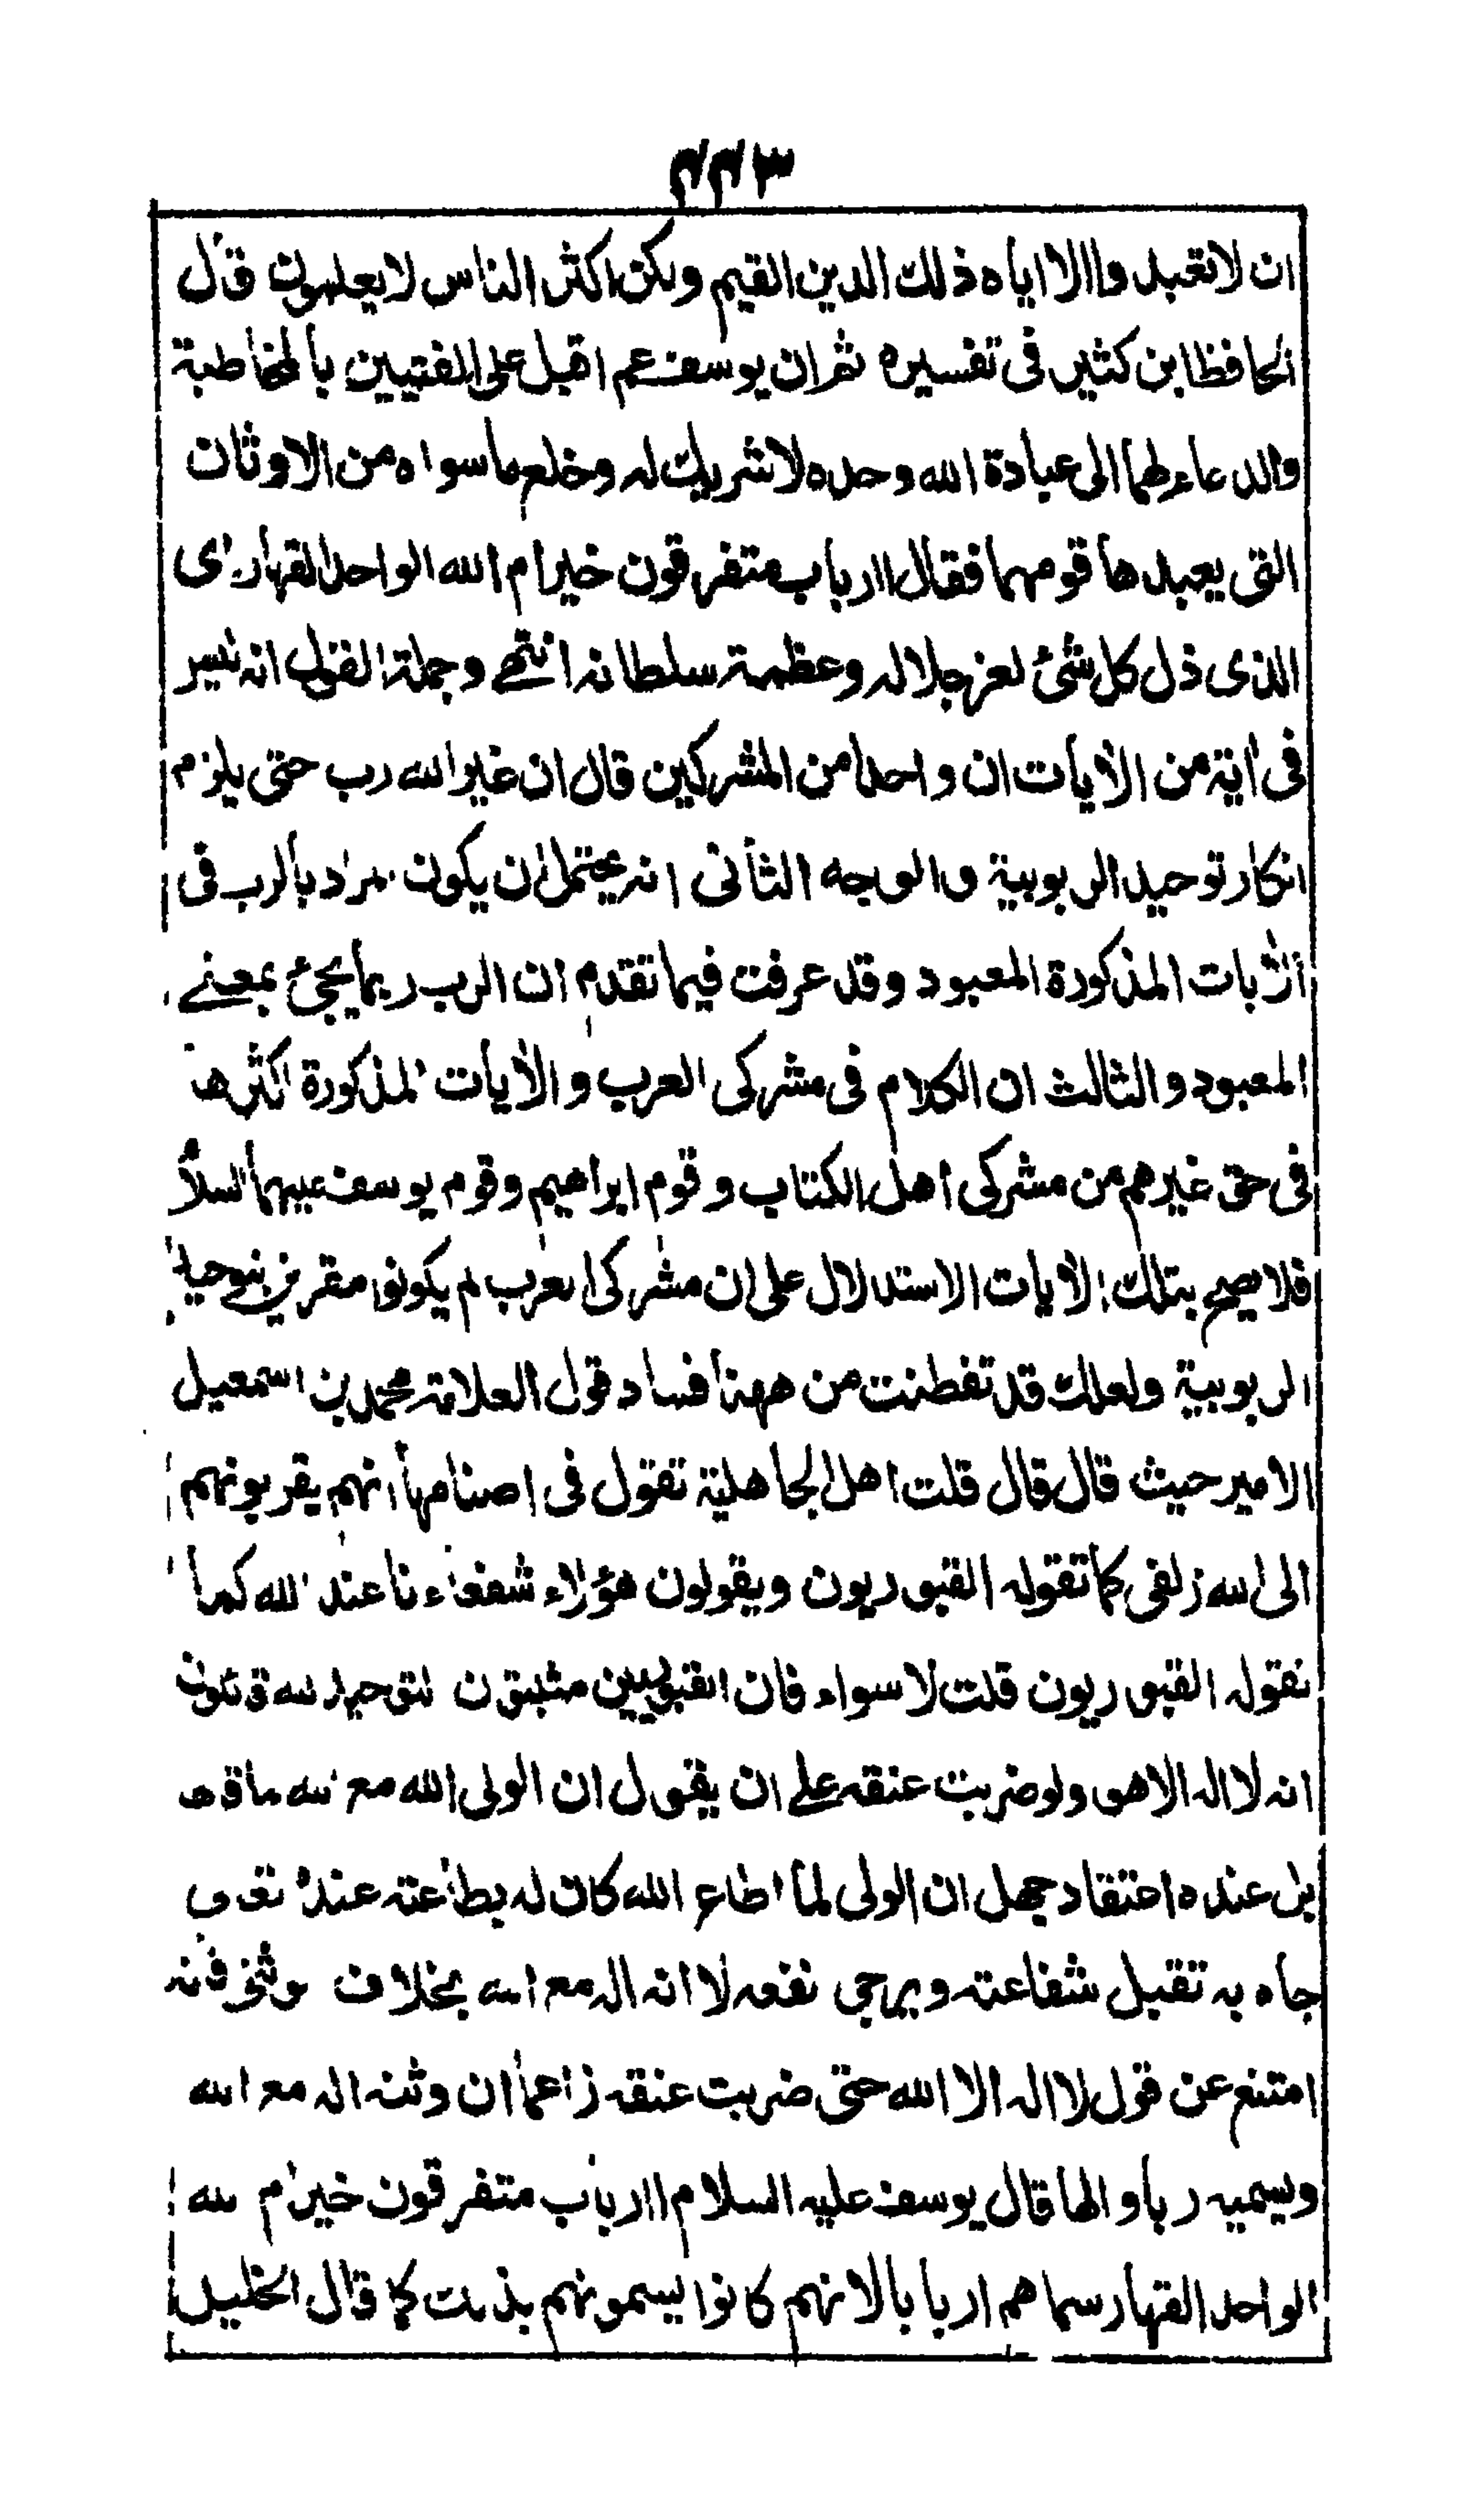 ٤٤٣
ان لا تعبدوا الا اياه ذلك الدين القيم ولكن اكثر الناس لا يعلمون قال
الحافظ ابن كثير فى تفسيره ثم ان يوسف عم اقبل على الفتيين بالمخاطبة
والدعاء لهما الى عبادة الله وحده لا شريك له وخلع ما سواه من الاوثان
التى يعبدها قومهما فقال اارباب متفرقون خير ام الله الواحد القهار اى
الذى ذل كل شئ لعز جلاله وعظمة سلطانه انتهى وجملة القول انه ليس
فى اية من الايات ان واحدا من المشركين قال ان غير الله رب حتى يلزم
انكار توحيد الربوبية والوجه الثانى انه يحتمل ان يكون المراد بالرب فى
الايات المذكورة المعبود وقد عرفت فيما تقدم ان الرب ربما يجئ بمعنے
المعبود والثالث ان الكلام فى مشركى العرب والايات المذكورة اكثرها
فى حق غيرهم من مشركى اهل الكتاب وقوم ابراهيم وقوم يوسف عليهما السلا
فلا يصح بتلك الايات الاستدلال على ان مشركى العرب لم يكونوا مقرين بتوحيد
الربوبية ولعلك قد تفطنت من ههنا فساد قول العلامة محمد بن اسمعيل
الامير حيث قال قال قلت اهل الجاهلية تقول فى اصنامها انهم يقربونهم
الى الله زلفى كما تقوله القبوريون ويقولون هؤلاء شفعاءنا عند الله كما
تقوله القبوريون قلت لا سواء فان القبوريين مثبتون لتوحيد الله قائلون
انه لا اله الا هو ولو ضربت عنقه على ان يقول ان الولى اله مع الله ما قاله
بل عنده اعتقاد جهل ان الولى لما اطاع الله كان له بطاعته عنده تعالى
جاه به تقبل شفاعته ويرجى نفعه لا انه اله مع الله بخلاف الوثنى فانه
امتنع عن قول لا اله الا الله حتى ضربت عنقه زاعما ان وثنه اله مع الله
ويسميه ربا والها قال يوسف عليه السلام اارباب متفرقون خير ام الله
الواحد القهار سماهم اربابا لانهم كانوا يسمونهم بذلك كما قال الخليل